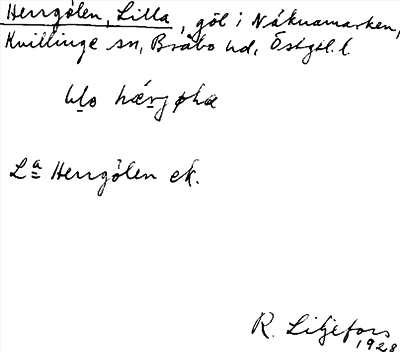 Herrgölen, Lilla, göl i Näknamarken,
Kvillinge sn, Bråbo hd, Östgöt. l.
hærjøhla
Lᵃ Herrgölen ek.
R. Liljefors
1928